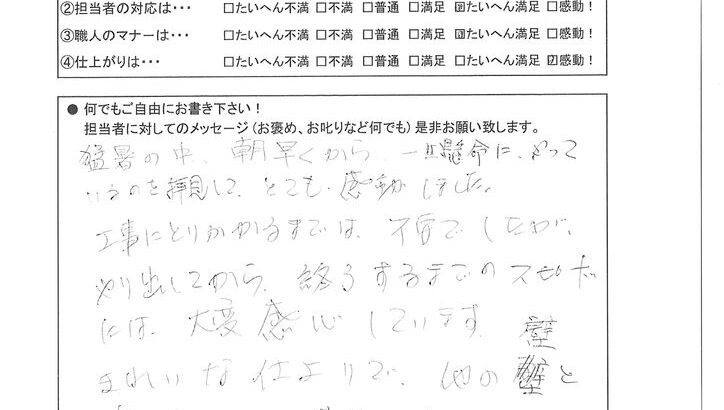 ②担当者の対応は･･･ □たいへん不満 □不満 □普通 □満足 ☑たいへん満足 □感動！
③職人のマナーは･･･ □たいへん不満 □不満 □普通 □満足 ☑たいへん満足 □感動！
④仕上がりは･･･ □たいへん不満 □不満 □普通 □満足 □たいへん満足 ☑感動！
● 何でもご自由にお書き下さい！
担当者に対してのメッセージ（お褒め、お叱りなど何でも）是非お願い致します。
猛暑の中、朝早くから、一生懸命に、やって
いるのを拝見して、とても感動しました。
工事にとりかかるまでは、不安でしたが、
やり出してから、終了するまでのスピード
には、大変感心しています。
壁
きれいな仕上りで、他の と